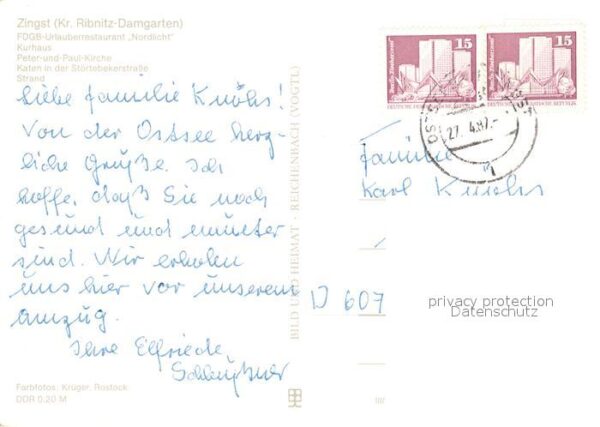 Zingst (Kr. Ribnitz-Damgarten)
FDGB-Urlauberrestaurant „Nordlicht“
Kurhaus
Peter-und-Paul-Kirche
Katen in der Störtebekerstraße
Strand
Liebe Familie Knöhs!
Von der Ostsee herz-
liche Grüße. Ich
hoffe, daß Sie noch
gesund und munter
sind. Wir erholen
uns hier vor unserem
Umzug.
Ihre Elfriede
Farbfotos: Krüger, Rostock
DDR 0,20 M
BILD UND HEIMAT · REICHENBACH (VOGTL)
15
15
27. 4.87.-
Familie
Karl
D 607
privacy protection
Datenschutz